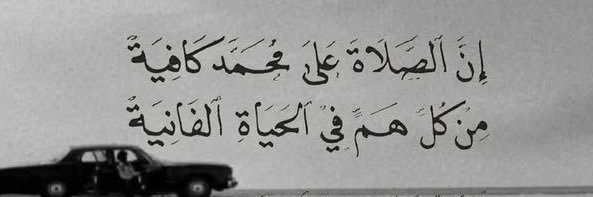 إِنَّ الصَّلَاةَ عَلَى مُحَمَّدٍ كَافِيَةٌ
مِنْ كُلِّ هَمٍّ فِي الْحَيَاةِ الْفَانِيَةْ